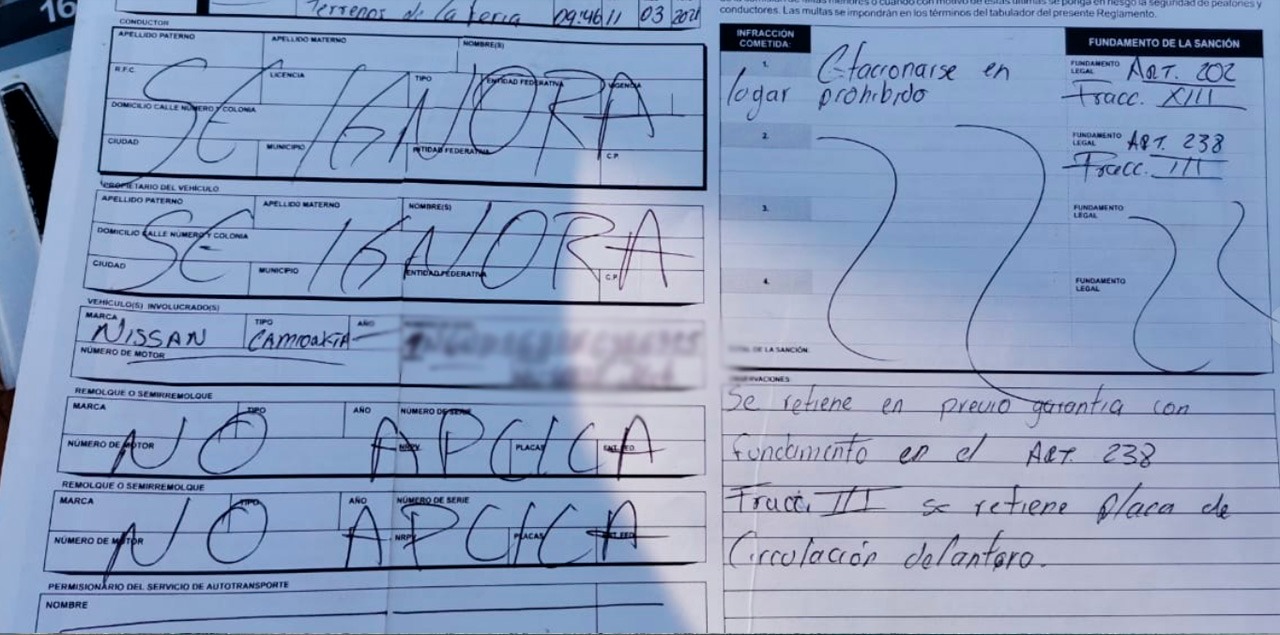 16
Terrenos de la feria 09:46 11 03 2021
conductores. Las multas se impondrán en los términos del tabulador del presente Reglamento.
CONDUCTOR
APELLIDO PATERNO APELLIDO MATERNO NOMBRE(S)
R.F.C. LICENCIA TIPO ENTIDAD FEDERATIVA VIGENCIA
SE IGNORA
DOMICILIO CALLE NÚMERO Y COLONIA
CIUDAD MUNICIPIO ENTIDAD FEDERATIVA C.P.
PROPIETARIO DEL VEHÍCULO
APELLIDO PATERNO APELLIDO MATERNO NOMBRE(S)
DOMICILIO CALLE NÚMERO Y COLONIA
SE IGNORA
CIUDAD MUNICIPIO ENTIDAD FEDERATIVA C.P.
VEHÍCULO(S) INVOLUCRADO(S)
MARCA TIPO AÑO
NISSAN
NÚMERO DE MOTOR
REMOLQUE O SEMIRREMOLQUE
MARCA TIPO AÑO NÚMERO DE SERIE
NO APLICA
NÚMERO DE MOTOR NRPV. PLACAS ENT. FED.
REMOLQUE O SEMIRREMOLQUE
MARCA TIPO AÑO NÚMERO DE SERIE
NO APLICA
NÚMERO DE MOTOR NRPV PLACAS ENT. FED.
PERMISIONARIO DEL SERVICIO DE AUTOTRANSPORTE
NOMBRE
INFRACCIÓN
COMETIDA:
FUNDAMENTO DE LA SANCIÓN
1. Estacionarse en
lugar prohibido
FUNDAMENTO
LEGAL ART. 202
Fracc. XIII
2.
FUNDAMENTO
LEGAL ART. 238
Fracc. III
3.
FUNDAMENTO
LEGAL
4.
FUNDAMENTO
LEGAL
DE LA SANCIÓN:
OBSERVACIONES
Se retiene en previo garantia con
fundamento en el ART. 238
Fracc. III se retiene placa de
Circulación delantero.